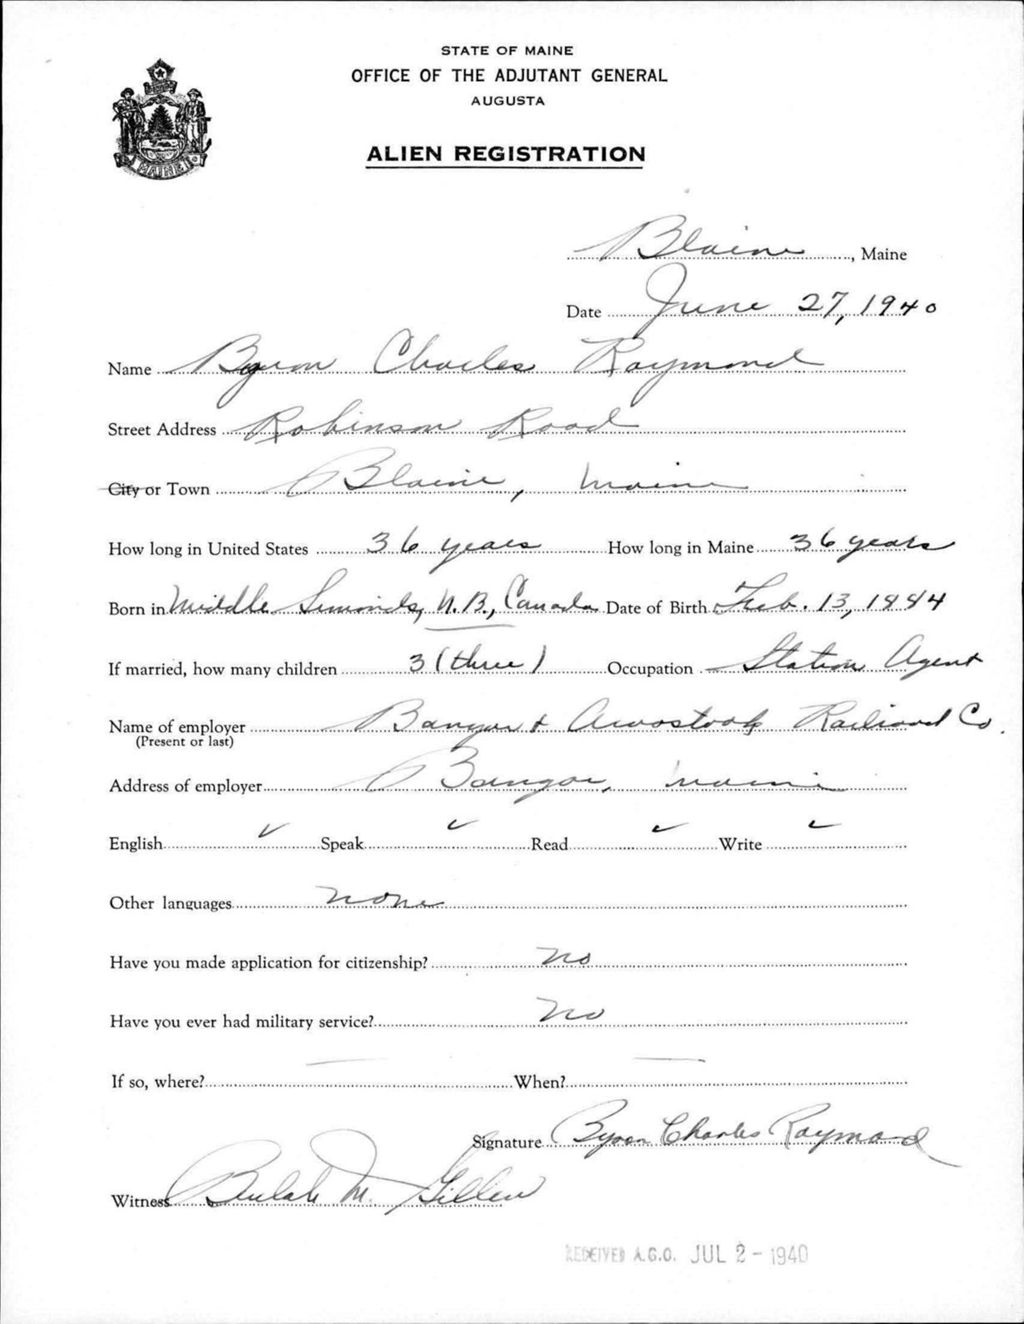 STATE OF MAINE
OFFICE OF THE ADJUTANT GENERAL
AUGUSTA
ALIEN REGISTRATION
MAINE
Blaine, Maine
Date June 27, 1940
Name Byron Charles Raymond
Street Address Robinson Road
City or Town Blaine, Maine
How long in United States 36 years How long in Maine 36 years
Born in Middle Simonds, N.B., Canada Date of Birth Feb. 13, 1884
If married, how many children 3 (three) Occupation Station Agent
Name of employer Bangor & Aroostook Railroad Co.
(Present or last)
Address of employer Bangor, Maine
English ✓ Speak ✓ Read ✓ Write ✓
Other languages none
Have you made application for citizenship? no
Have you ever had military service? no
If so, where? — When? —
Signature Byron Charles Raymond
Witness Beulah M. Gillen
RECEIVED A.G.O. JUL 2 - 1940